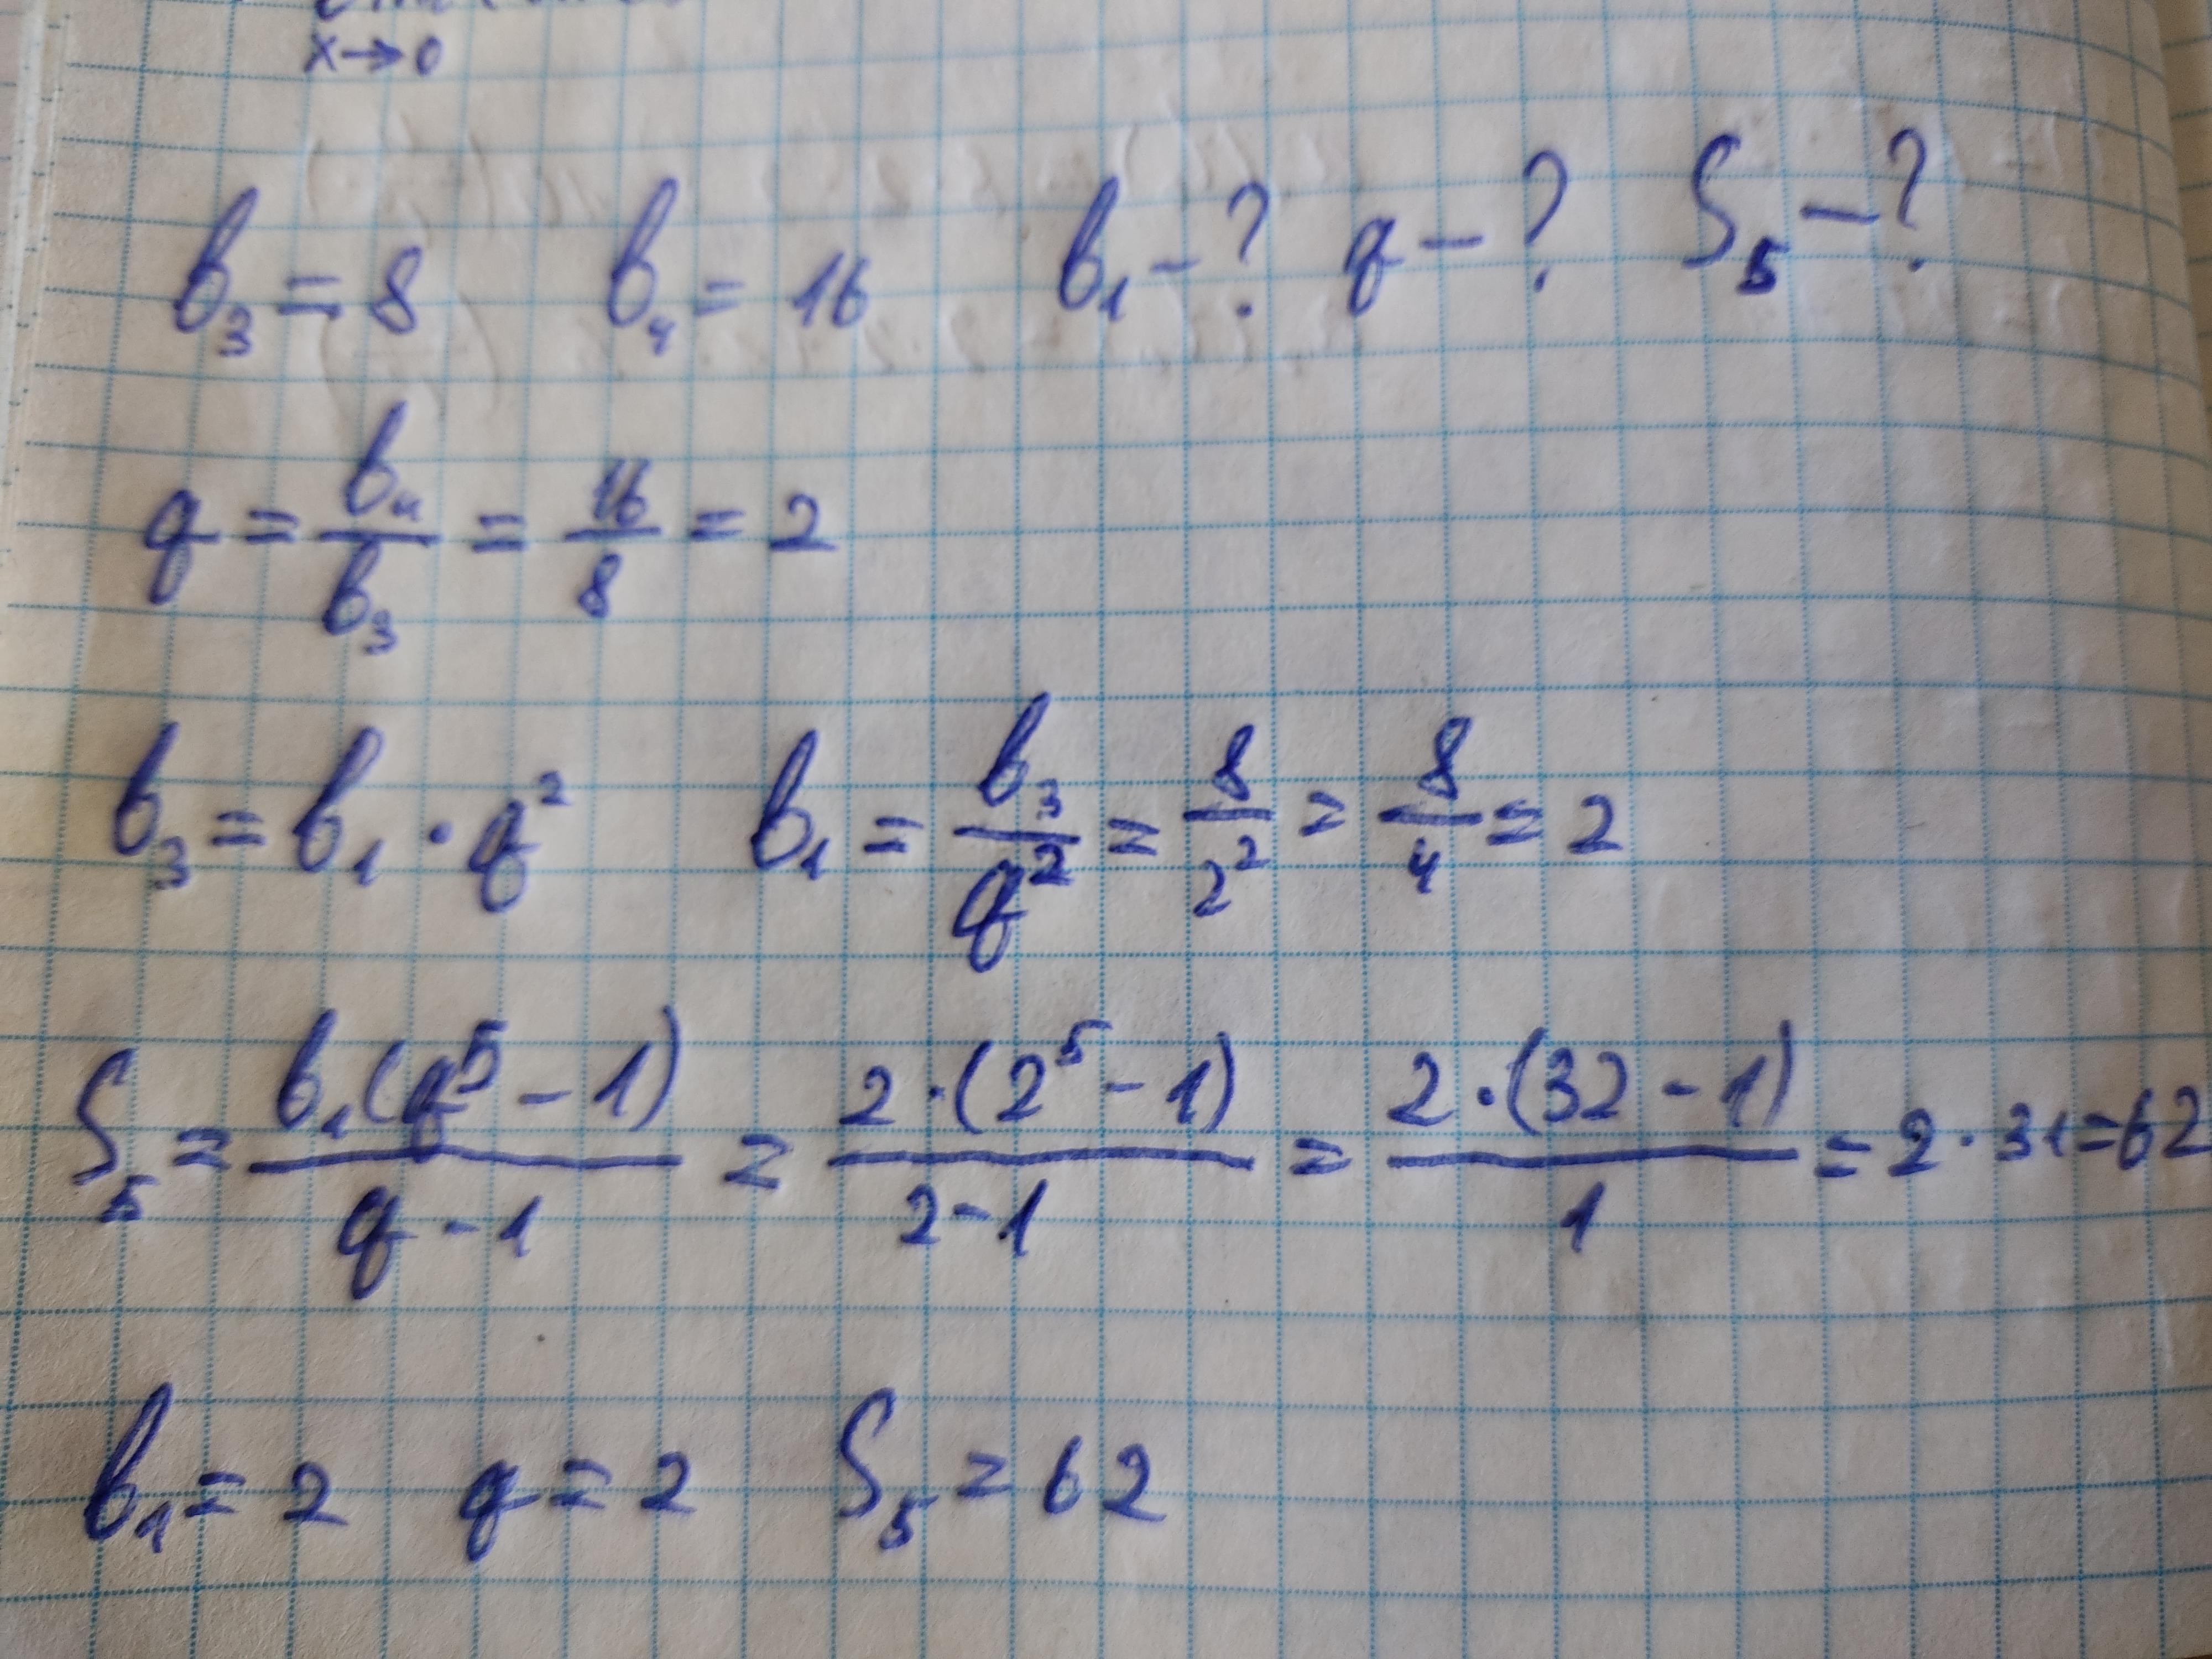 x→0
b₃ = 8 b₄ = 16 b₁ - ? q - ? S₅ - ?
q = b₄/b₃ = 16/8 = 2
b₃ = b₁ · q² b₁ = b₃/q² = 8/2² = 8/4 = 2
S₅ = b₁(q⁵ - 1)/(q - 1) = 2·(2⁵ - 1)/(2 - 1) = 2·(32 - 1)/1 = 2 · 31 = 62
b₁ = 2 q = 2 S₅ = 62